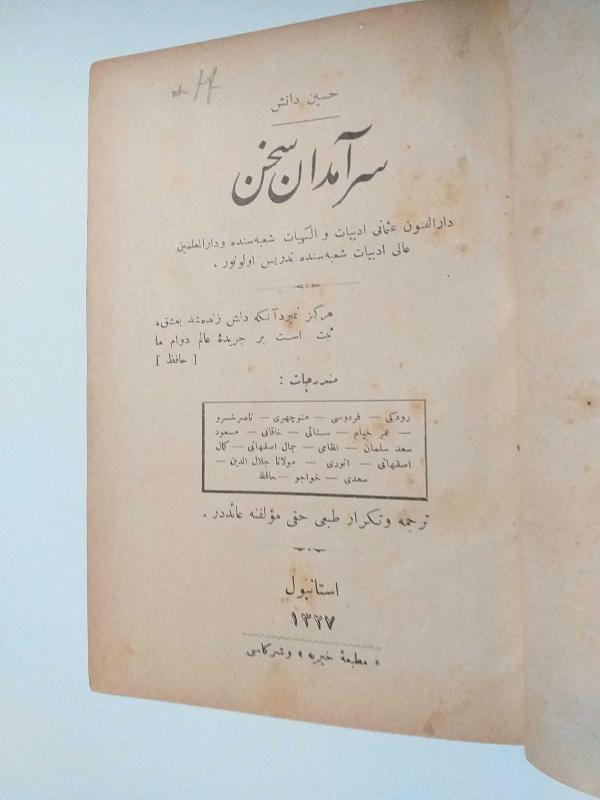 حسین دانش
سرآمدان سخن
دارالفنون عثمانی ادبیات و الٓهیات شعبه‌سنده و دارالمعلمین
عالی ادبیات شعبه‌سنده تدریس اولونور .
هرگز نمیرد آنکه دلش زنده شد بعشق،
ثبت است بر جریدهٔ عالم دوام ما
[ حافظ ]
مندرجات :
رودکی — فردوسی — منوچهری — ناصرخسرو
— عمر خیام — سنائی — خاقانی — مسعود
سعد سلمان — نظامی — جمال اصفهانی — کمال
اصفهانی — انوری — مولانا جلال الدین —
سعدی — خواجو — حافظ
ترجمه و تکرار طبعی حقی مؤلفنه عائددر .
استانبول
١٣٢٧
« مطبعهٔ خیریه » وشرکاسی